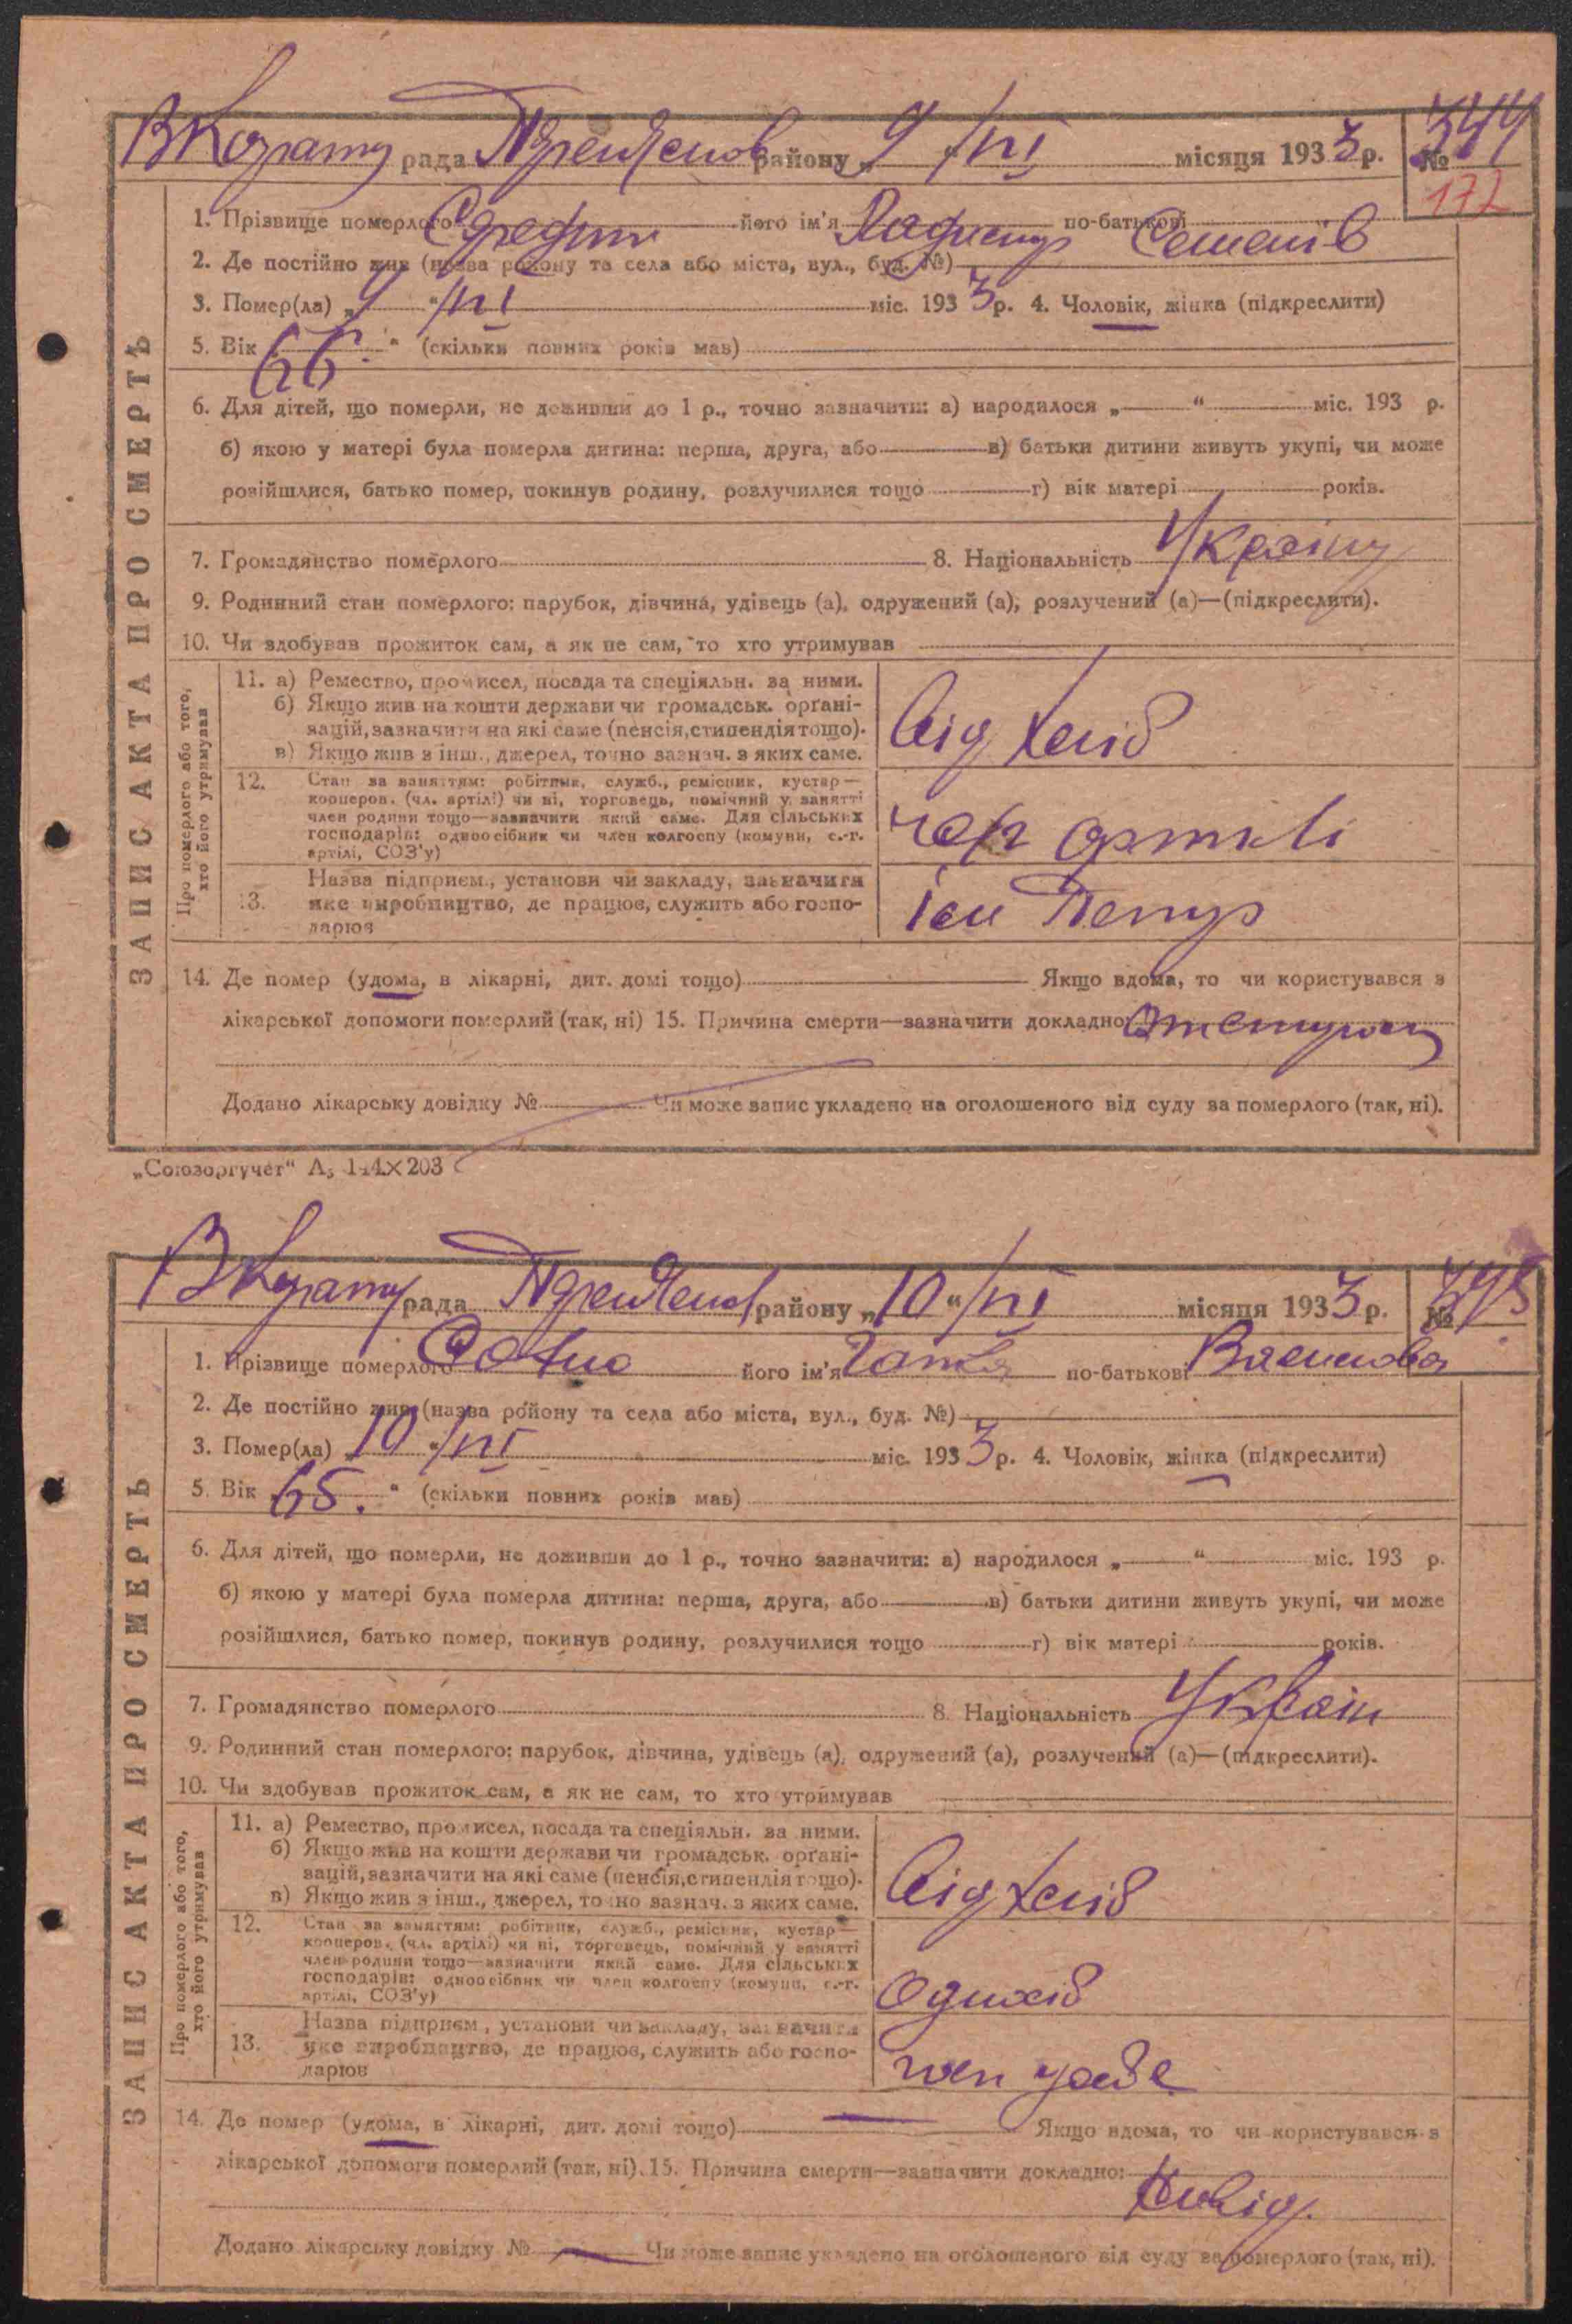 рада району „ 9 “ /VI місяця 1933 р. № 344
172
1. Прізвище померлого його ім'я по-батькові Семенів
2. Де постійно жив (назва району та села або міста, вул., буд. №)
3. Помер(ла) „ 9 “ /VI міс. 1933 р. 4. Чоловік, жінка (підкреслити)
5. Вік 66. “ (скільки повних років мав)
6. Для дітей, що померли, не доживши до 1 р., точно зазначити: а) народилося „ “ міс. 193 р.
б) якою у матері була померла дитина: перша, друга, або в) батьки дитини живуть укупі, чи може
розійшлися, батько помер, покинув родину, розлучилися тощо г) вік матері років.
7. Громадянство померлого 8. Національність Україн
9. Родинний стан померлого: парубок, дівчина, удівець (а), одружений (а), розлучений (а)—(підкреслити).
10. Чи здобував прожиток сам, а як не сам, то хто утримував
ЗАПИС АКТА ПРО СМЕРТЬ
Про померлого або того,
хто його утримував
11. а) Ремество, промисел, посада та спеціяльн. за ними.
б) Якщо жив на кошти держави чи громадськ. орґані-
зацій, зазначити на які саме (пенсія, стипендія тощо).
в) Якщо жив з інш., джерел, точно зазнач. з яких саме.
12. Стан за заняттям: робітник, служб., ремісник, кустар—
кооперов. (чл. артілі) чи ні, торговець, помічний у занятті
член родини тощо—зазначити який саме. Для сільських
господарів: одноосібник чи член колгоспу (комуни, с.-г.
артілі, СОЗ'у)
артілі
13. Назва підприєм., установи чи закладу, зазначити
яке виробництво, де працює, служить або госпо-
дарює
14. Де помер (удома, в лікарні, дит. домі тощо) Якщо вдома, то чи користувався з
лікарської допомоги померлий (так, ні) 15. Причина смерти—зазначити докладно:
Додано лікарську довідку № Чи може запис укладено на оголошеного від суду за померлого (так, ні).
„Союзоргучет“ А5 144×203
рада району „ 10 “ /VI місяця 1933 р. № 345
1. Прізвище померлого його ім'я по-батькові
2. Де постійно жив (назва району та села або міста, вул., буд. №)
3. Помер(ла) „ 10 “ /VI міс. 1933 р. 4. Чоловік, жінка (підкреслити)
5. Вік 65. “ (скільки повних років мав)
6. Для дітей, що померли, не доживши до 1 р., точно зазначити: а) народилося „ “ міс. 193 р.
б) якою у матері була померла дитина: перша, друга, або в) батьки дитини живуть укупі, чи може
розійшлися, батько помер, покинув родину, розлучилися тощо г) вік матері років.
7. Громадянство померлого 8. Національність Україн
9. Родинний стан померлого: парубок, дівчина, удівець (а), одружений (а), розлучений (а)—(підкреслити).
10. Чи здобував прожиток сам, а як не сам, то хто утримував
ЗАПИС АКТА ПРО СМЕРТЬ
Про померлого або того,
хто його утримував
11. а) Ремество, промисел, посада та спеціяльн. за ними.
б) Якщо жив на кошти держави чи громадськ. орґані-
зацій, зазначити на які саме (пенсія, стипендія тощо).
в) Якщо жив з інш., джерел, точно зазнач. з яких саме.
12. Стан за заняттям: робітник, служб., ремісник, кустар—
кооперов. (чл. артілі) чи ні, торговець, помічний у занятті
член родини тощо—зазначити який саме. Для сільських
господарів: одноосібник чи член колгоспу (комуни, с.-г.
артілі, СОЗ'у)
13. Назва підприєм., установи чи закладу, зазначити
яке виробництво, де працює, служить або госпо-
дарює
14. Де помер (удома, в лікарні, дит. домі тощо) Якщо вдома, то чи користувався з
лікарської допомоги померлий (так, ні). 15. Причина смерти—зазначити докладно:
Додано лікарську довідку № Чи може запис укладено на оголошеного від суду за померлого (так, ні).